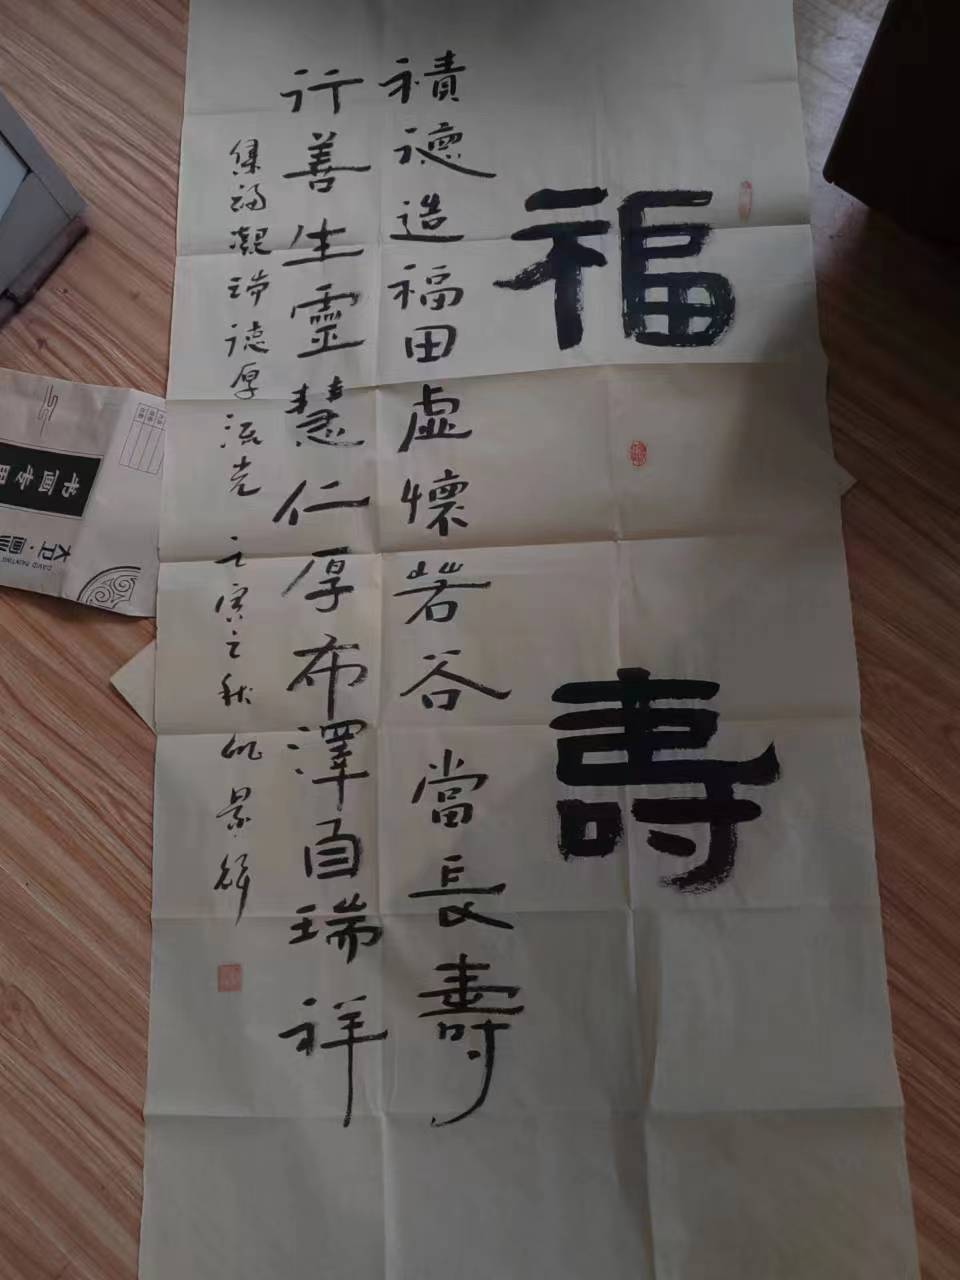 福壽
積德造福田虛懷若谷當長壽
行善生靈慧仁厚布澤自瑞祥
集福凝瑞德厚流光
之秋
景
书画专用
大卫·画
DAVID PAINTING